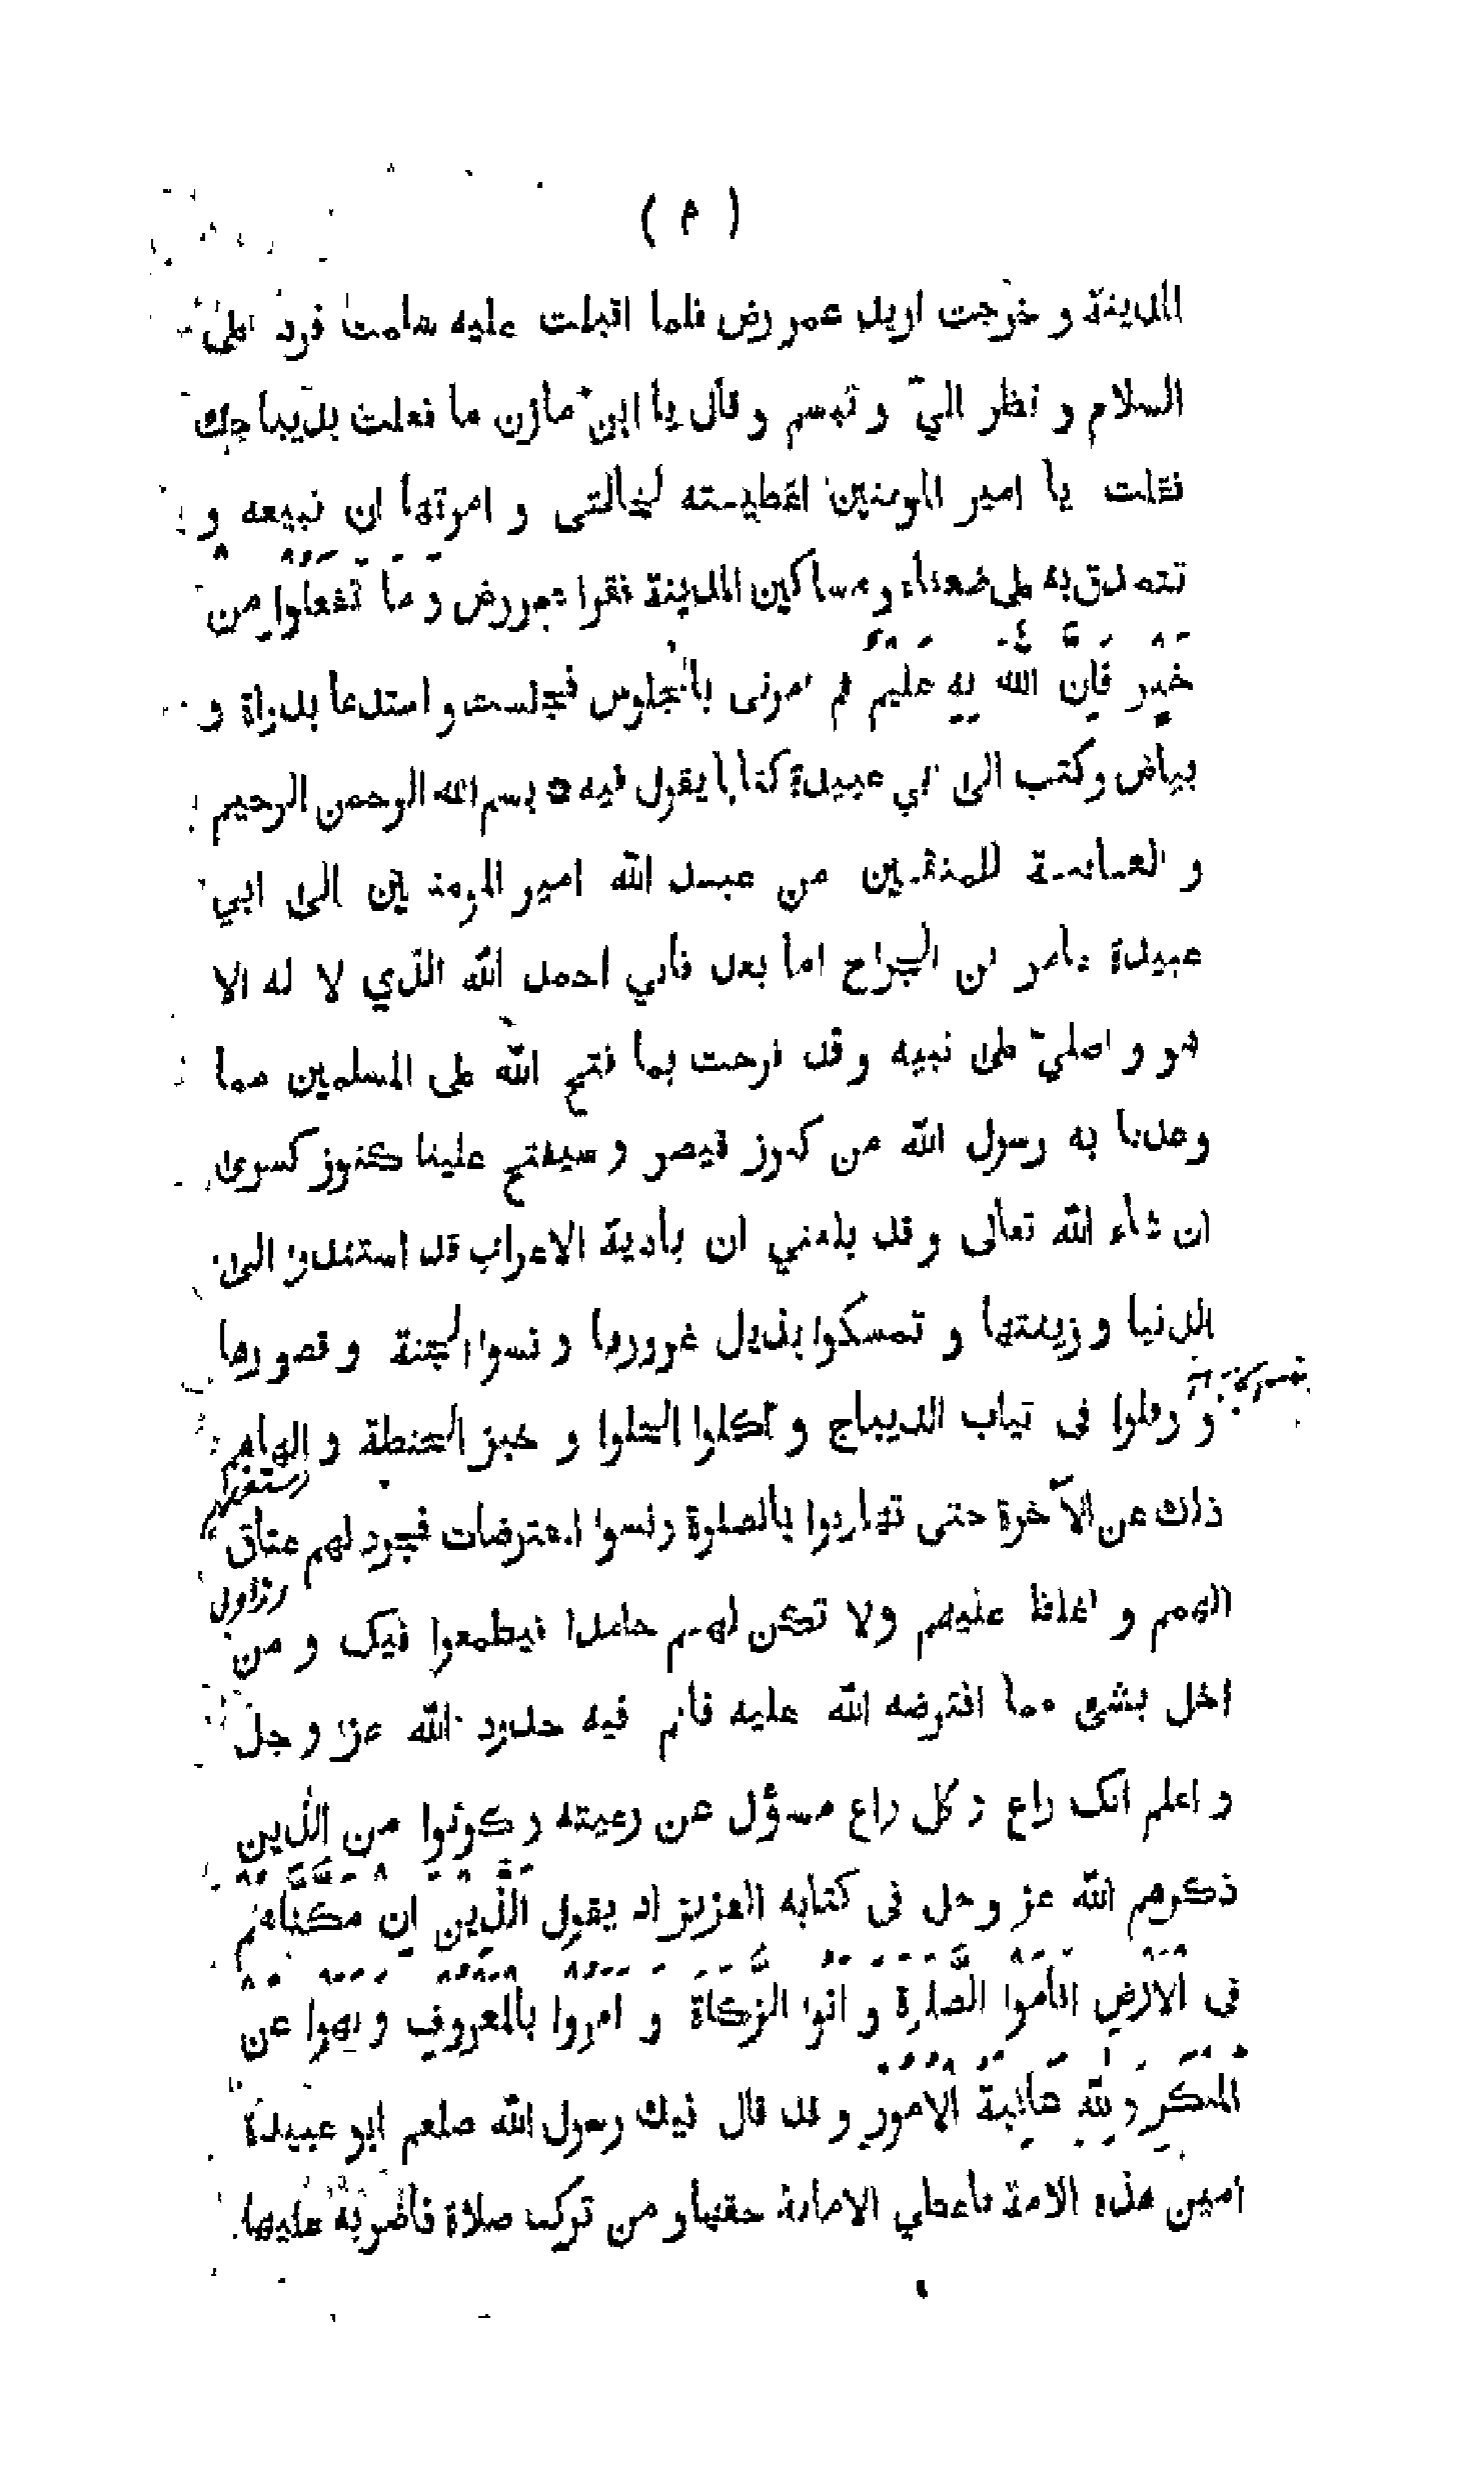 ( م )
المدينة و خرجت اريد عمر رض فلما اقبلت عليه سلمت فرد علىّ
السلام و نظر اليّ و تبسم و قال يا ابن مازن ما فعلت بديباجك
فقلت يا امير المومنين اعطيـته لخالتى و امرتها ان تبيعه و
تتصدق به على ضعفاء و مساكين المدينة فقرا عمر رض وَ مَا تَفْعَلُوا مِنْ
خَيْرٍ فَاِنَّ اللّٰهَ بِهِ عَلِيْمٌ ثم امرنى بالجلوس فجلست و استدعا بدواة و
بياض و كتب الى ابي عبيدة كتابا يقول فيه ٥ بسم الله الرحمن الرحيم
و العـاقبـة للمتقـين من عبـد الله امير المومنين الى ابي
عبيدة عامر بن الجراح اما بعد فاني احمد الله الذي لا اله الا
هو و اصليّ على نبيه و قد فرحت بما فتح الله على المسلمين مما
وعدنا به رسول الله من كنوز قيصر و سيفتح علينا كنوز كسرى
ان شاء الله تعالى و قد بلغني ان بادية الاعراب قد استندوا الى
الدنيا و زينتها و تمسكوا بذيل غرورها و نسوا الجنة و قصورها
و رفلوا فى ثياب الديباج و اكلوا الحلوا و خبز الحنطة و الهاهم
ذلك عن الآخرة حتى تهاونوا بالصلوة و نسوا المفترضات فجرد لهم عتاق
الهمم و اغلظ عليهم ولا تكن لهـم حاملا فيطمعوا فيك و من
اخل بشى مما افترضه الله عليه فاقم فيه حدود الله عز و جل
و اعلم انك راع و كل راع مسؤل عن رعيته و كونوا من الذين
ذكرهم الله عز و جل فى كتابه العزيز اذ يقول اَلَّذِيْنَ اِنْ مَكَّنَّاهُمْ
فى الْاَرْضِ اَقَامُوا الصَّلوةَ و اٰتَوُا الزَّكَاةَ وَ اَمَرُوْا بِالْمَعْرُوْفِ وَ نَهَوْا عَنْ
الْمُنْكَرِ وَ لِلّٰهِ عَاقِبَةُ الْاُمُوْرِ و قد قال فيك رسول الله صلعم ابو عبيدة
امين هذه الامة فاعطي الامانة حقها و من ترك صلاة فاضربه عليها